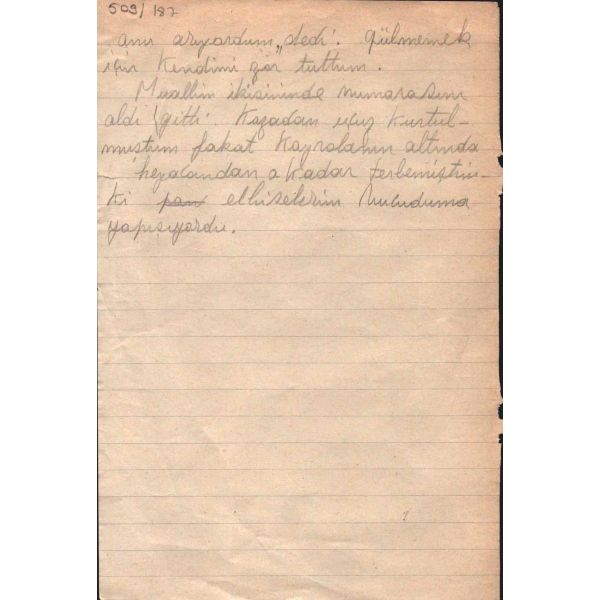 509/187
onu arıyordum „dedi. Gülmemek
için kendimi zor tuttum.
Muallim ikisininde numarasını
aldı gitti. Kazadan ucuz kurtul-
muştum fakat Kaproların altında
heyacandan o kadar terlemiştim-
ki elbiselerim vucuduma
yapışıyordu.